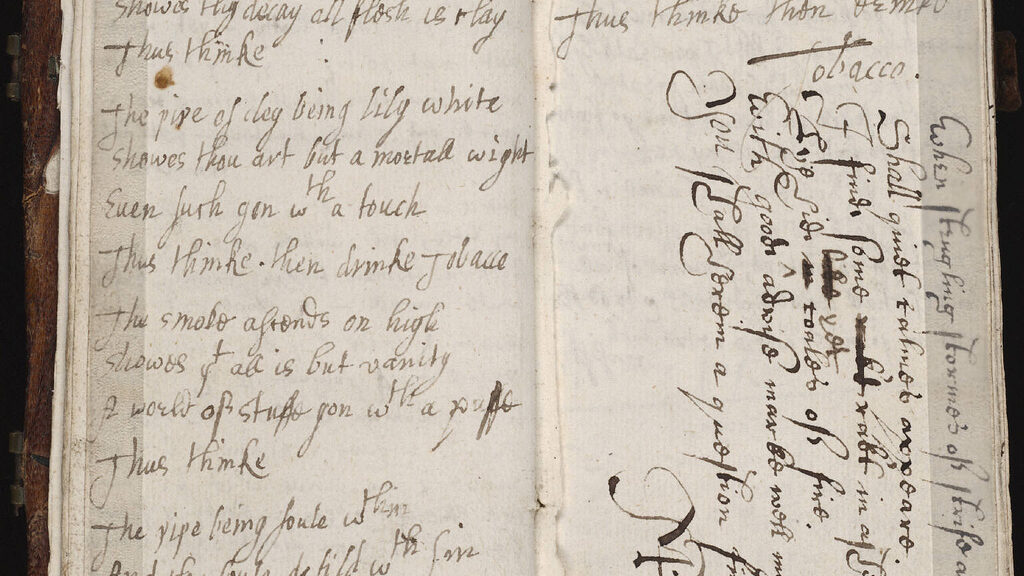 showes thy decay all flesh is clay
Thus thinke
The pipe of cley being lily white
showes thou art but a mortall wight
Euen such gon wth a touch
Thus thinke. then drinke Tobacco
The smoke ascends on high
showes yt all is but vanity
A world of stuffe gon wth a puffe
Thus thinke
The pipe being foule wthin
And the soule defild wth sin
Thus thinke then drinke
Tobacco.
When stingling stormes of strife a
Shall quiet calmes appeare
I find some
side
contes of fine
With good advise marke well
You shall serem a question